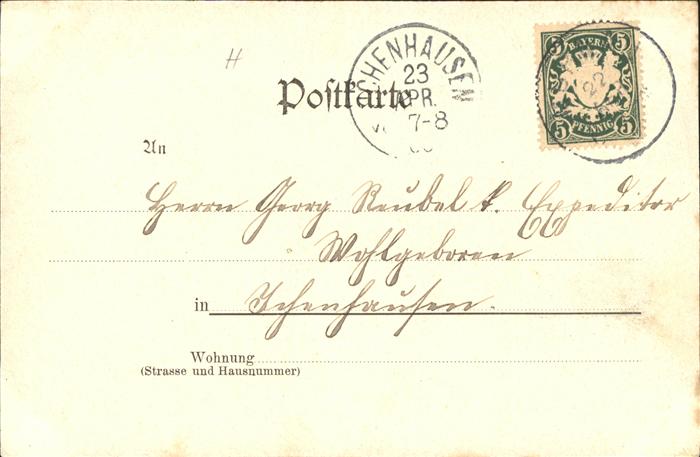 CHENHAUSEN
23
APR.
7-8
Postkarte
5 BAYERN 5
5 PFENNIG 5
22
An
Herrn Georg Reubel k. Expeditor
Wohlgeboren
in Ichenhausen.
Wohnung
(Strasse und Hausnummer)